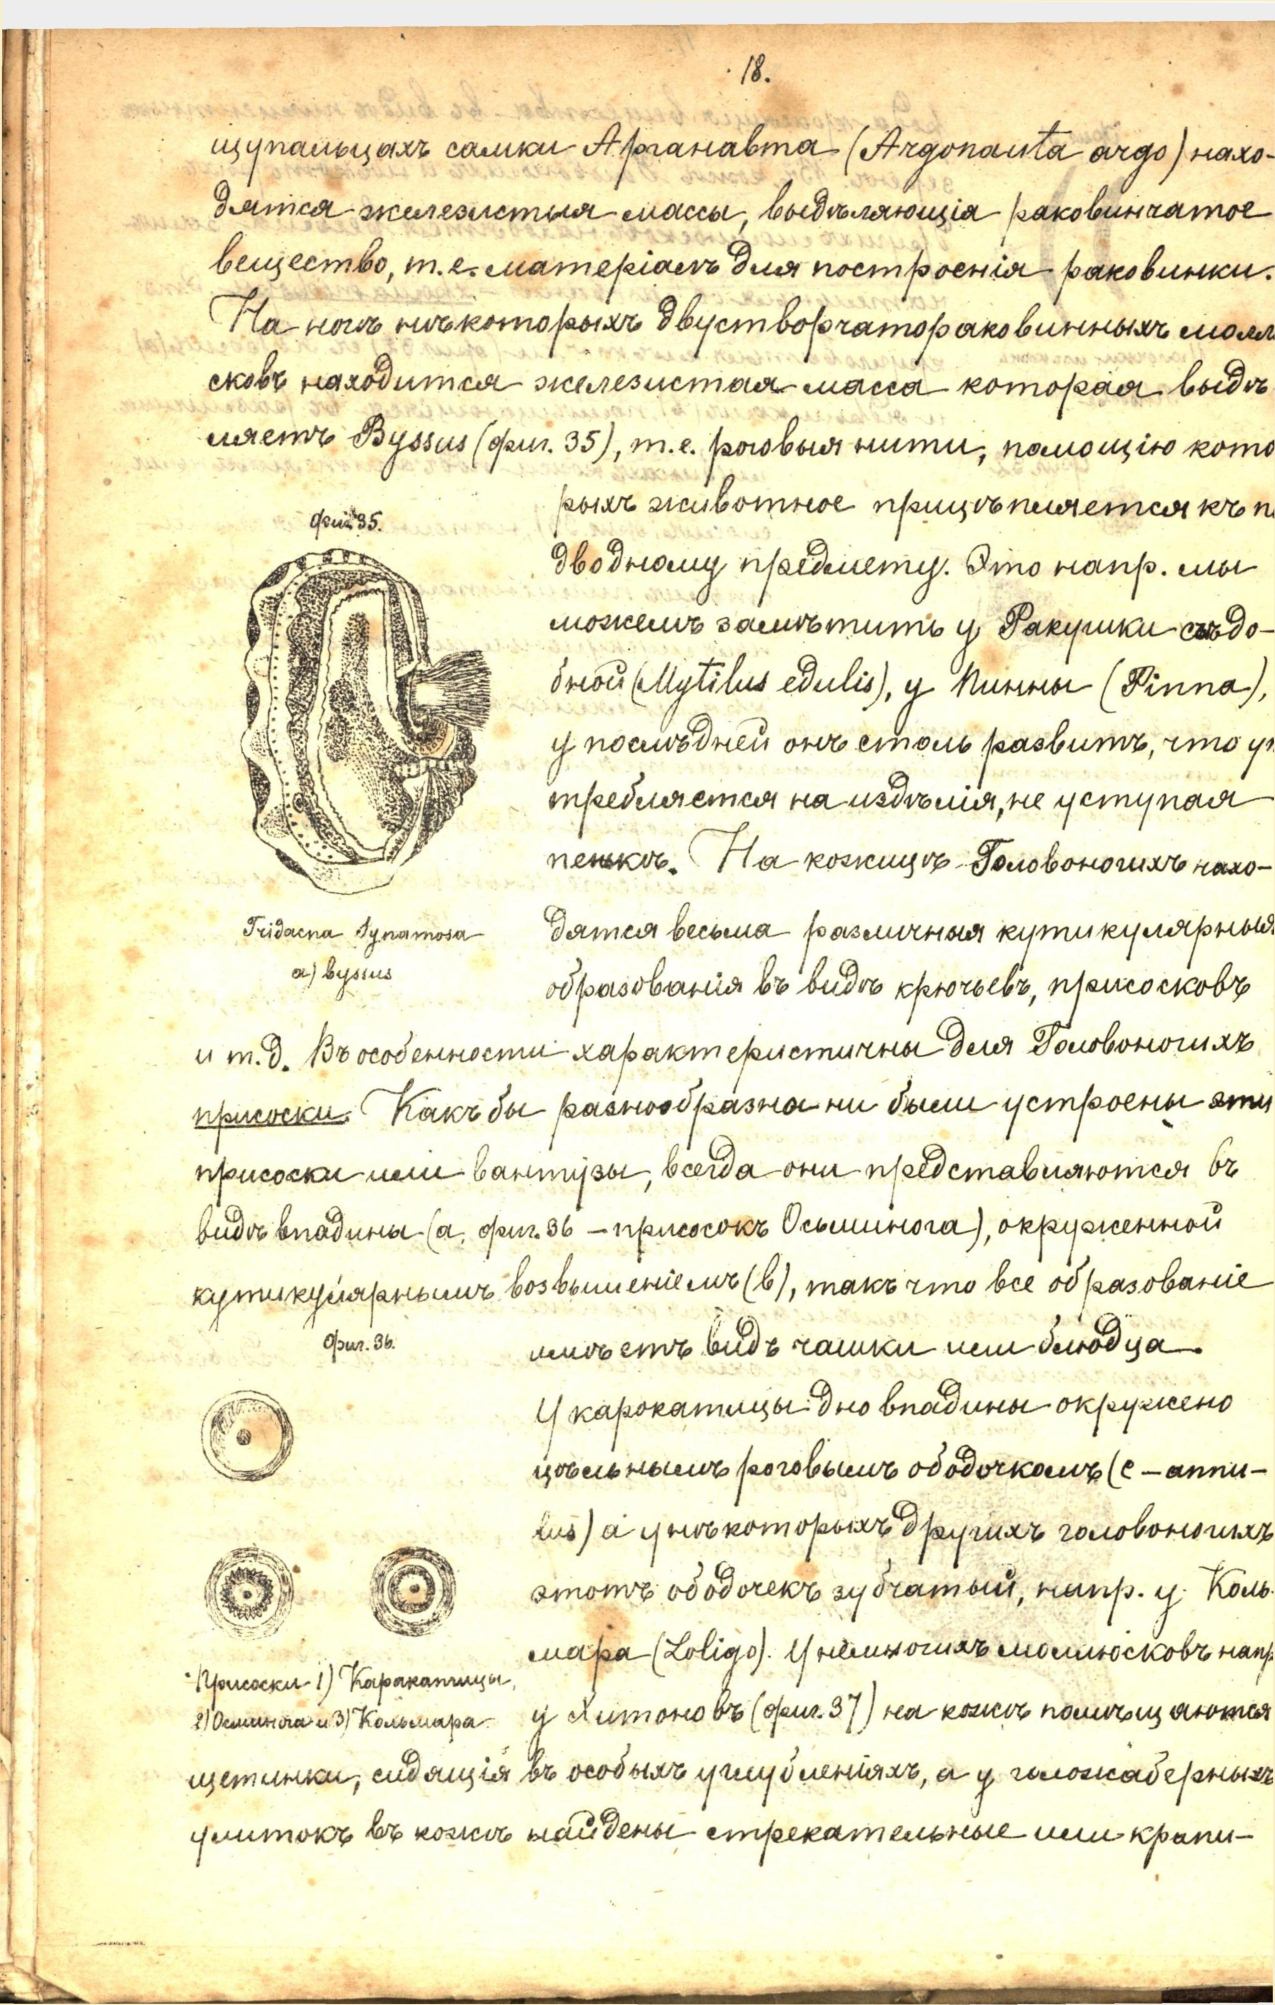 18.
щупальцахъ самки Арганавта (Argonauta argo) нахо-
дятся железистыя массы, выдѣляющія раковинчатое
вещество, т.е. матеріалъ для построенія раковинки.
На ногѣ нѣкоторыхъ двустворчатораковинныхъ молл
сковъ находится железистая масса которая выдѣ
ляетъ Byssus (фиг. 35), т.е. роговыя нити, помощію кото
рыхъ животное прицѣпляется къ п
дводному предмету. Это напр. мы
можемъ замѣтить у Ракушки съѣдо-
бной (Mytilus edulis), у Пинны (Pinna),
у послѣдней онъ столь развитъ, что уп
требляется на издѣлія, не уступая
пенькѣ. На кожицѣ Головоногихъ нахо-
дятся весьма различныя кутикулярныя
образованія въ видѣ крючьевъ, присосковъ
и т.д. Въ особенности характеристичны для Головоногихъ
присоски. Какъ бы разнообразна ни были устроены эти
присоски или вантузы, всегда они представляются въ
видѣ впадины (а. фиг. 36 – присосокъ Осьминога), окруженной
кутикулярнымъ возвышеніемъ (в), такъ что все образованіе
имѣетъ видъ чашки или блюдца.
У карокатицы дно впадины окружено
цѣльнымъ роговымъ ободочкомъ (с – annu-
lus) а у нѣкоторыхъ другихъ головоногихъ
этотъ ободочекъ зубчатый, напр. у Коль-
мара (Loligo). У немногихъ моллюсковъ напр
у Хитоновъ (фиг. 37) на кожѣ помѣщаются
щетинки, сидящія въ особыхъ углубленіяхъ, а у голожаберныхъ
улитокъ въ кожѣ найдены стрекательные или крапи-
фиг. 35.
Tridacna Sqnamosa
a) byssus
Фиг. 36.
Присоски 1) Каракатицы,
2) Осминога и 3) Кольмара